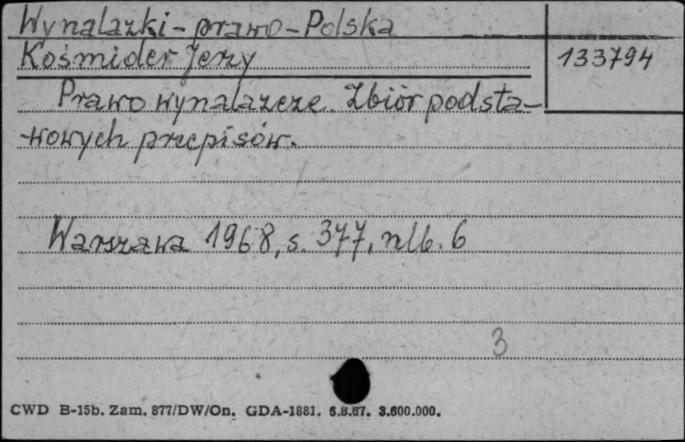 Wynalazki - prawo - Polska
Kośmider Jerzy
133794
Prawo wynalazcze. Zbiór podsta-
wowych przepisów.
Warszawa 1968, s. 377, nlb. 6
3
CWD B-15b. Zam. 877/DW/On. GDA-1881. 6.8.67. 3.600.000.